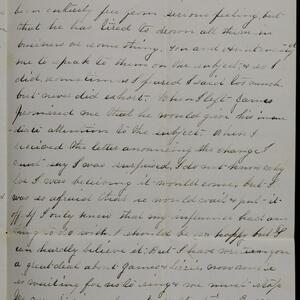 been entirely free from serious feeling, but
that he has tried to drown all them in
business or some thing. You and Aunt
me to speak to them on the subject & so I
did sometimes I feared I said too much,
but never did exhort. When I left James
promised me that he would give his imme-
diate attention to the subject. When I
received the letter announcing the change I
must say I was surprised, I do not know why
for I was believing it would come, but I
was so afraid he would wait & put it
off. If I only knew that my influence had any
thing to do with it I should be so happy but I
can hardly believe it. But I have written you
a great deal about James & Lizzie, now some one
is waiting for us to sing & we must stop